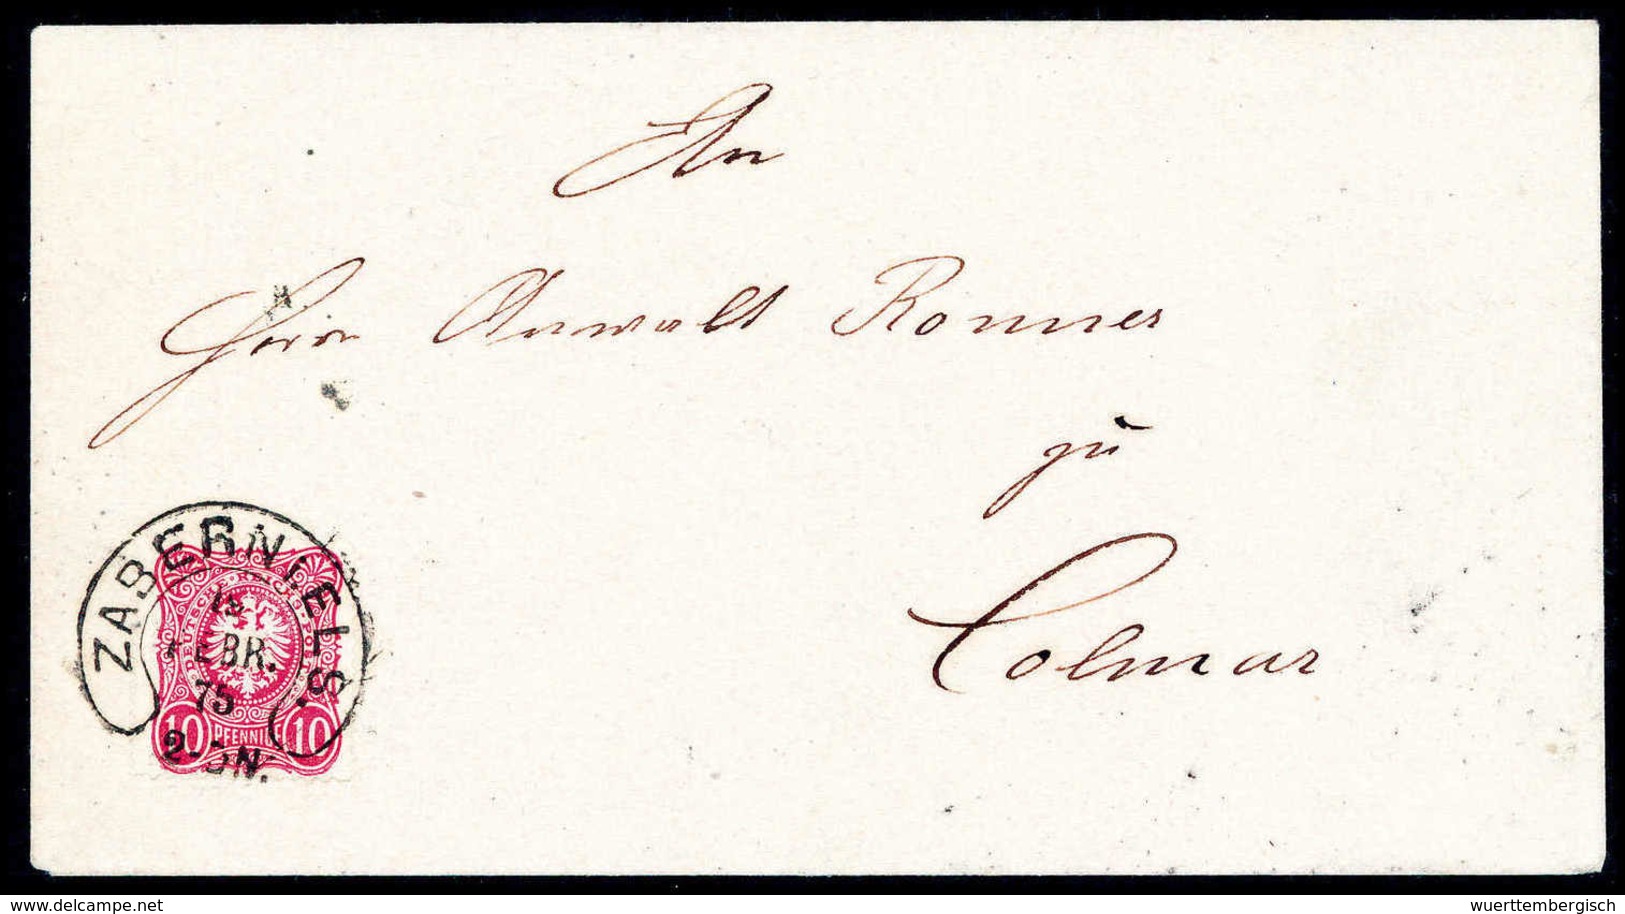 An
Herrn Anwalt Ronner
zu
Colmar
ZABERN i. ELS.
FEBR.
75
2-3N.
DEUTSCHE REICHS-POST
10 PFENNIGE 10
www.delcampe.net
wuerttembergisch